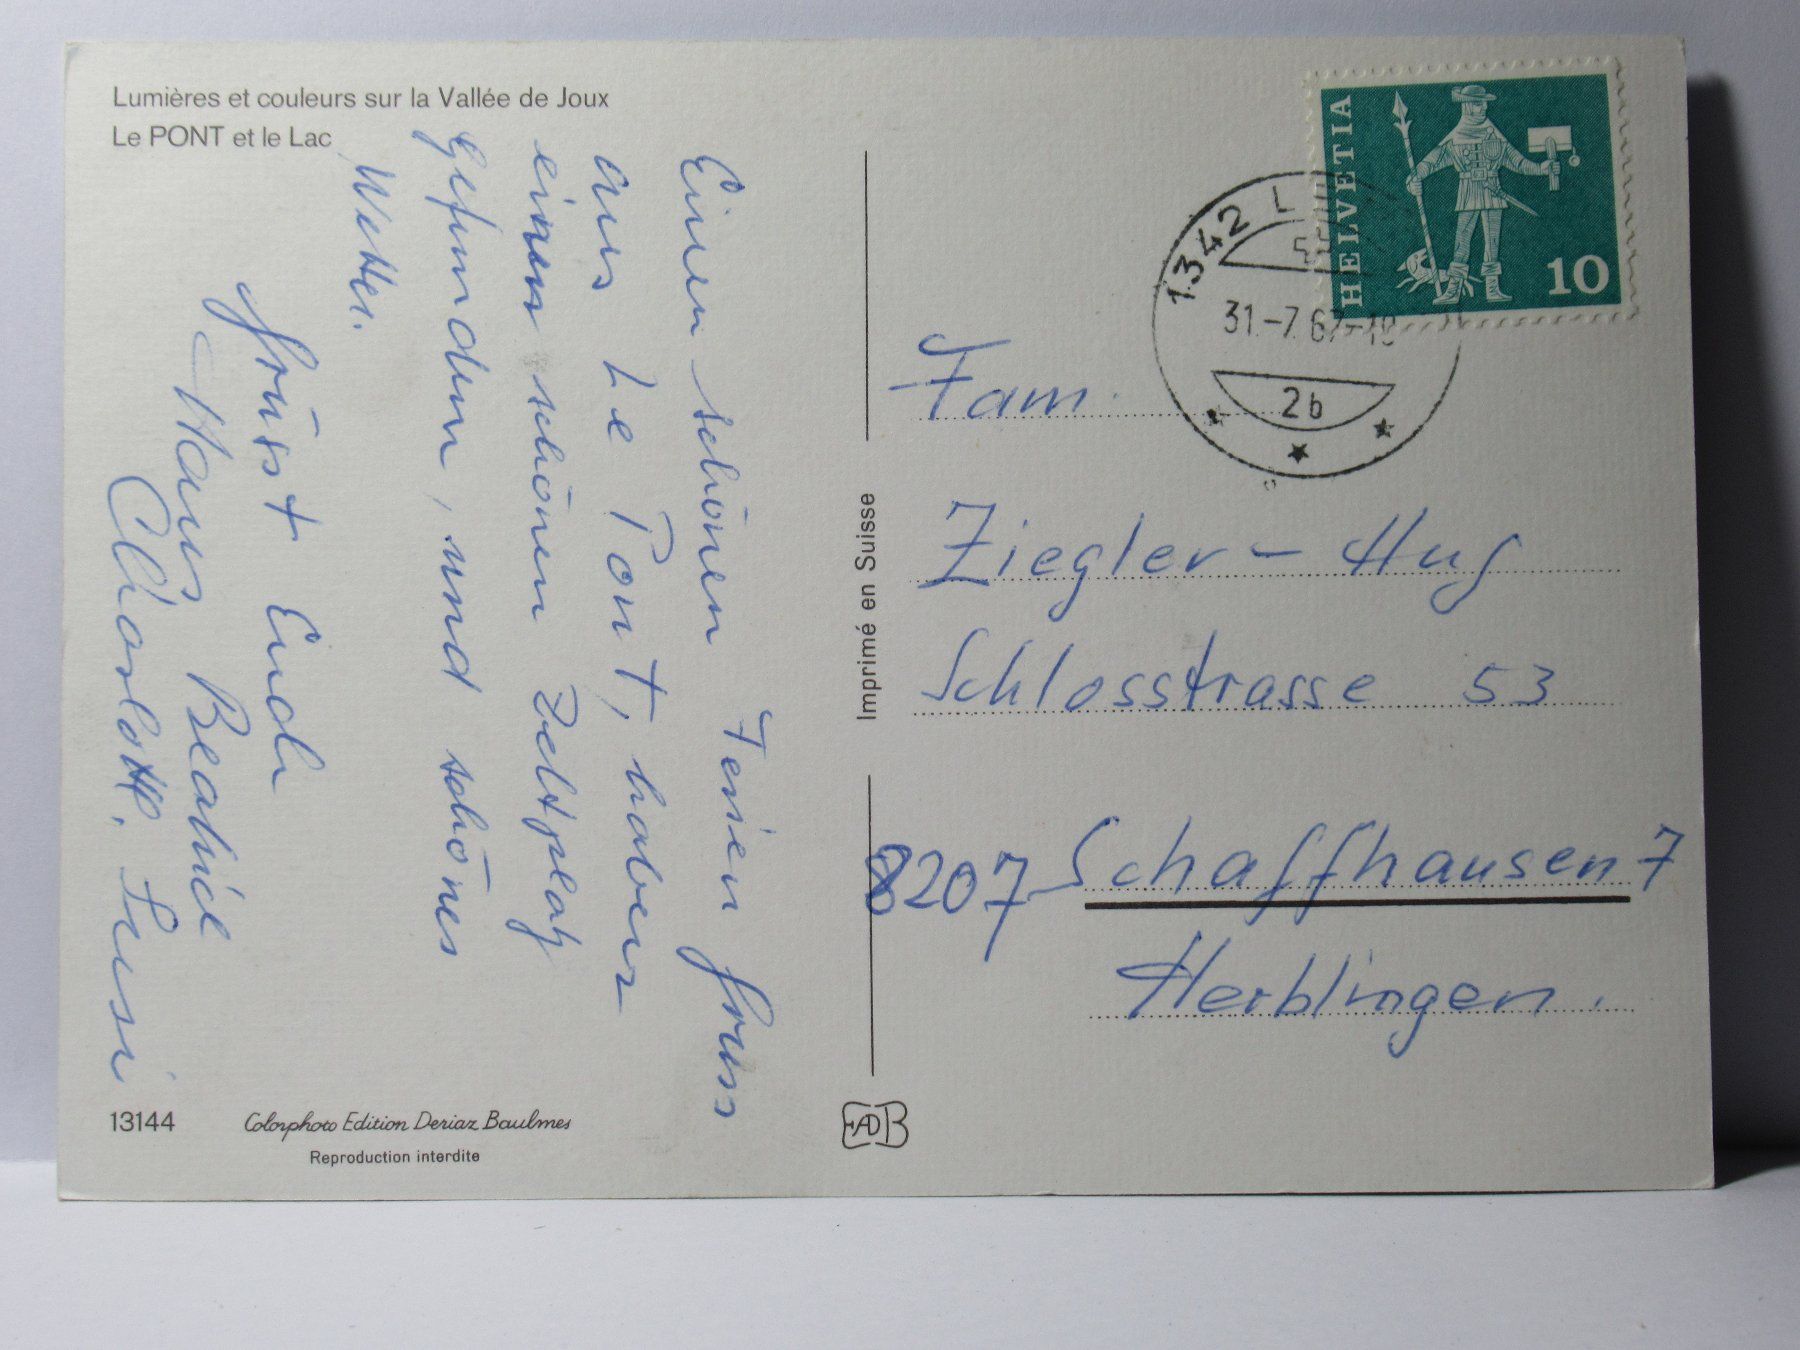 Lumières et couleurs sur la Vallée de Joux
Le PONT et le Lac
Einen schönen Ferien Gruss
aus Le Pont, haben
einen schönen Zeltplatz
gefunden, und schönes
Wetter.
Grüsst Euch
Hans Beatrice
Charlotte. Susi
13144
Colorphoto Edition Deriaz Baulmes
Reproduction interdite
Imprimé en Suisse
EADB
HELVETIA
10
1342 L
31.-7.67-18
2b
Fam.
Ziegler - Hug
Schlosstrasse 53
8207 Schaffhausen 7
Herblingen.